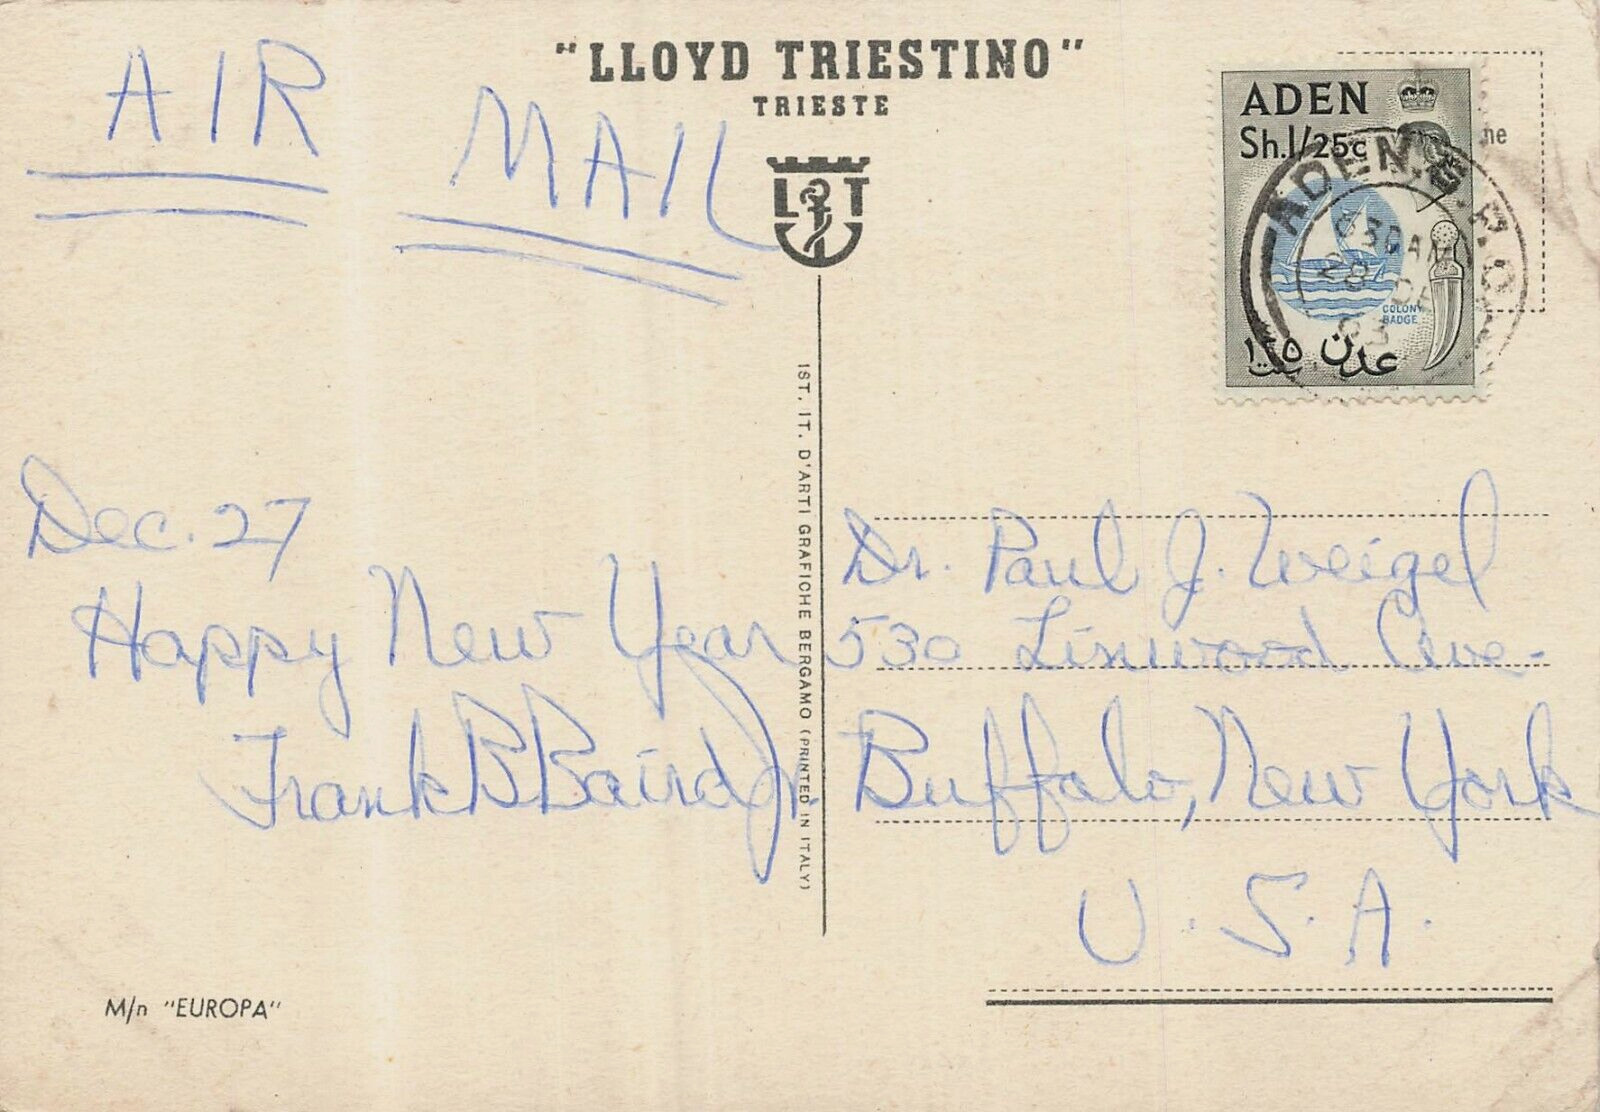 "LLOYD TRIESTINO"
TRIESTE
AIR MAIL
L T
ADEN
Sh.1/25c
COLONY
BADGE
١٢٥ سنت عدن
ADEN. G.P.O
630AM
28 DE
63
he
IST. IT. D'ARTI GRAFICHE BERGAMO (PRINTED IN ITALY)
Dec. 27
Happy New Year
Frank B Baird Jr.
Dr. Paul J. Weigel
530 Linwood Ave.
Buffalo, New York
U.S.A.
M/n "EUROPA"